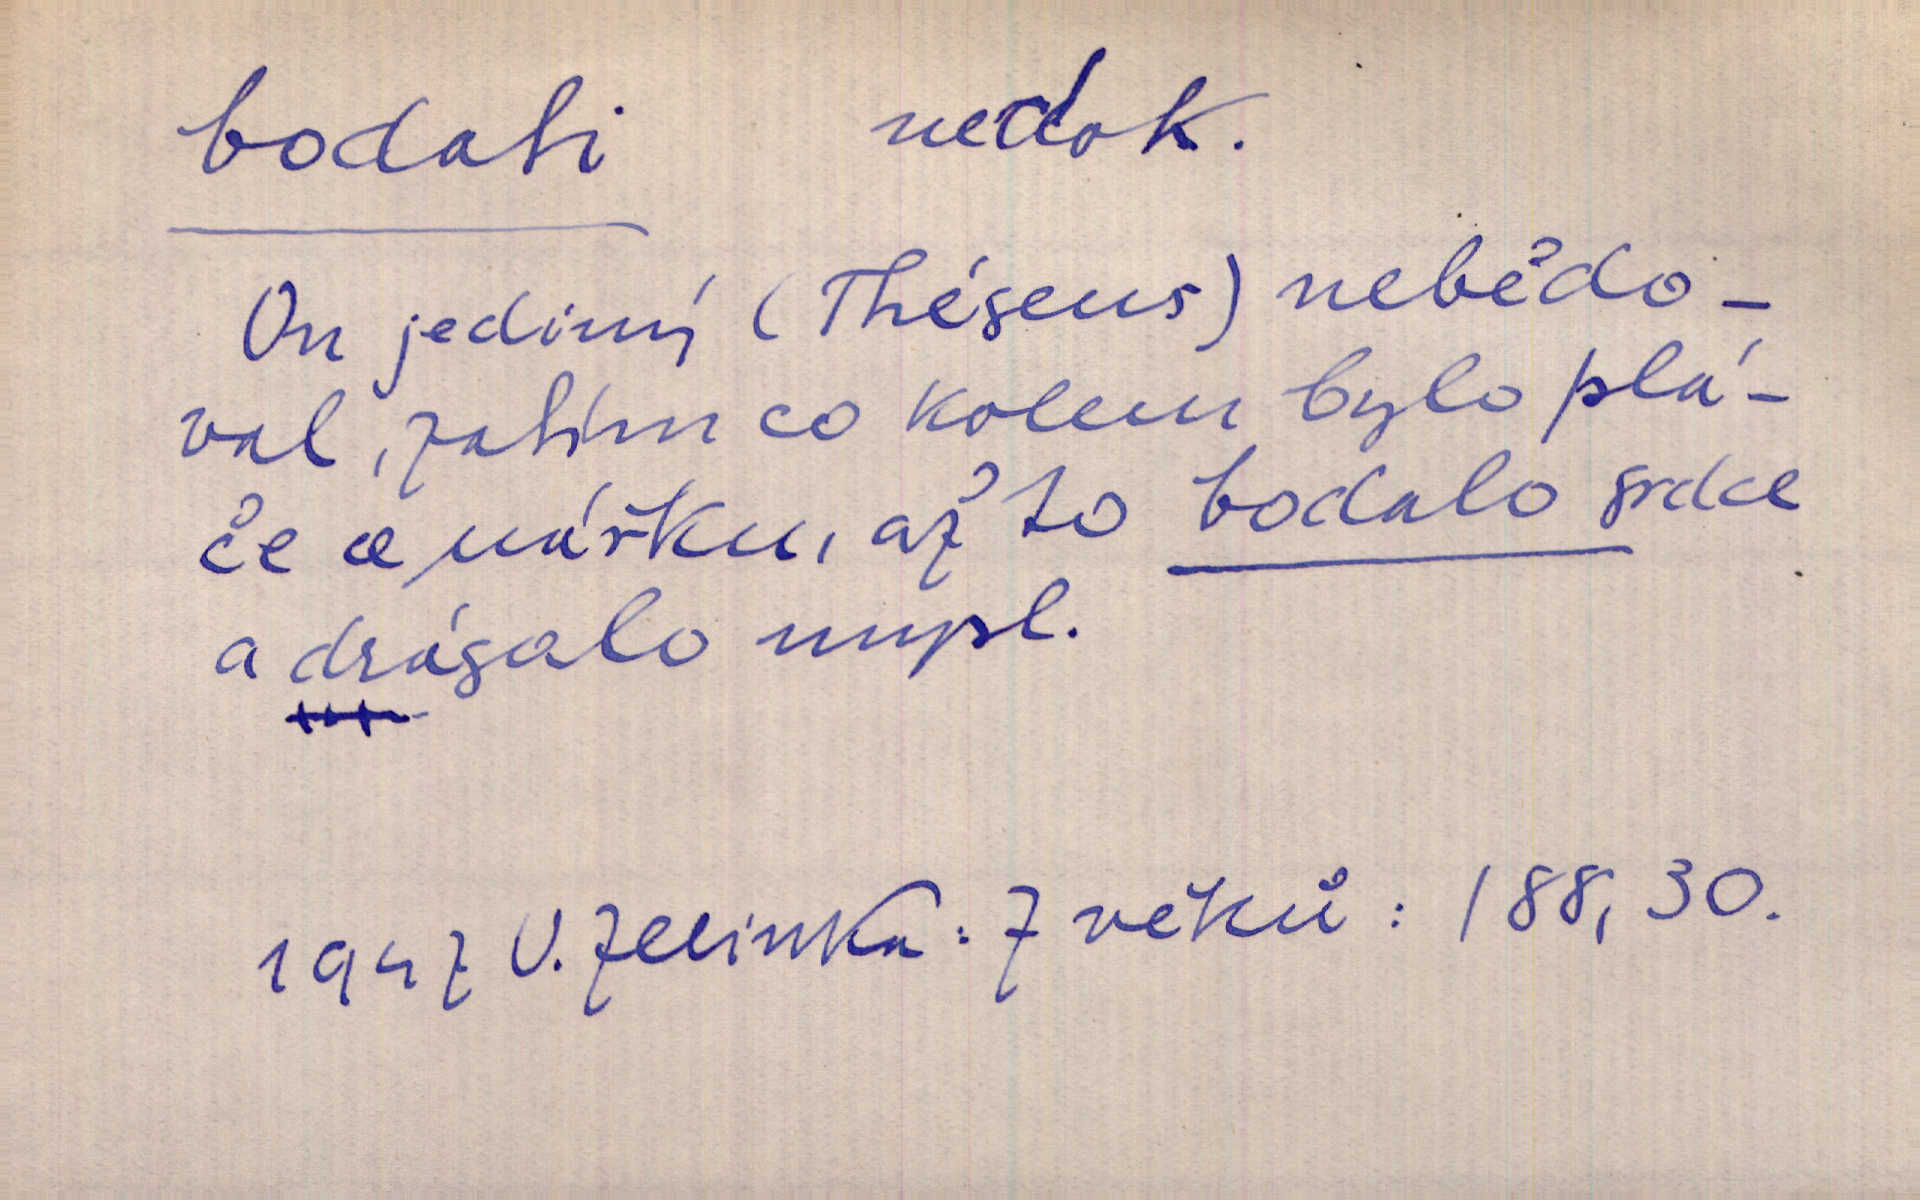 bodati nedok.
On jediný (Théseus) nebědo-
val, zatím co kolem bylo plá-
če a nářku, až to bodalo srdce
a drásalo mysl.
1947 V. Zelinka: 7 věků: 188, 30.